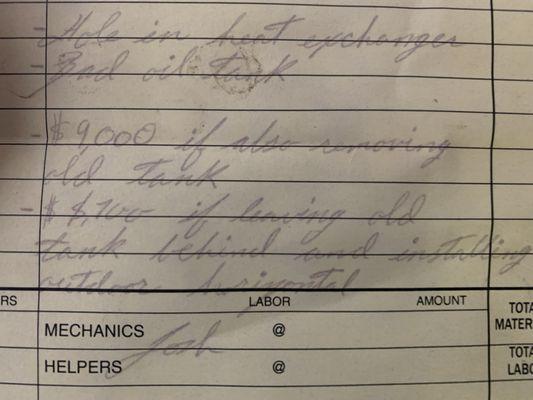 - Hole in heat exchanger
- Bad oil tank
- $9000 if also removing
old tank
- $ if leaving old
tank behind and installing
outdoor horizontal
RS LABOR AMOUNT TOTA
MATER
MECHANICS Josh @
TOTA
LABO
HELPERS @